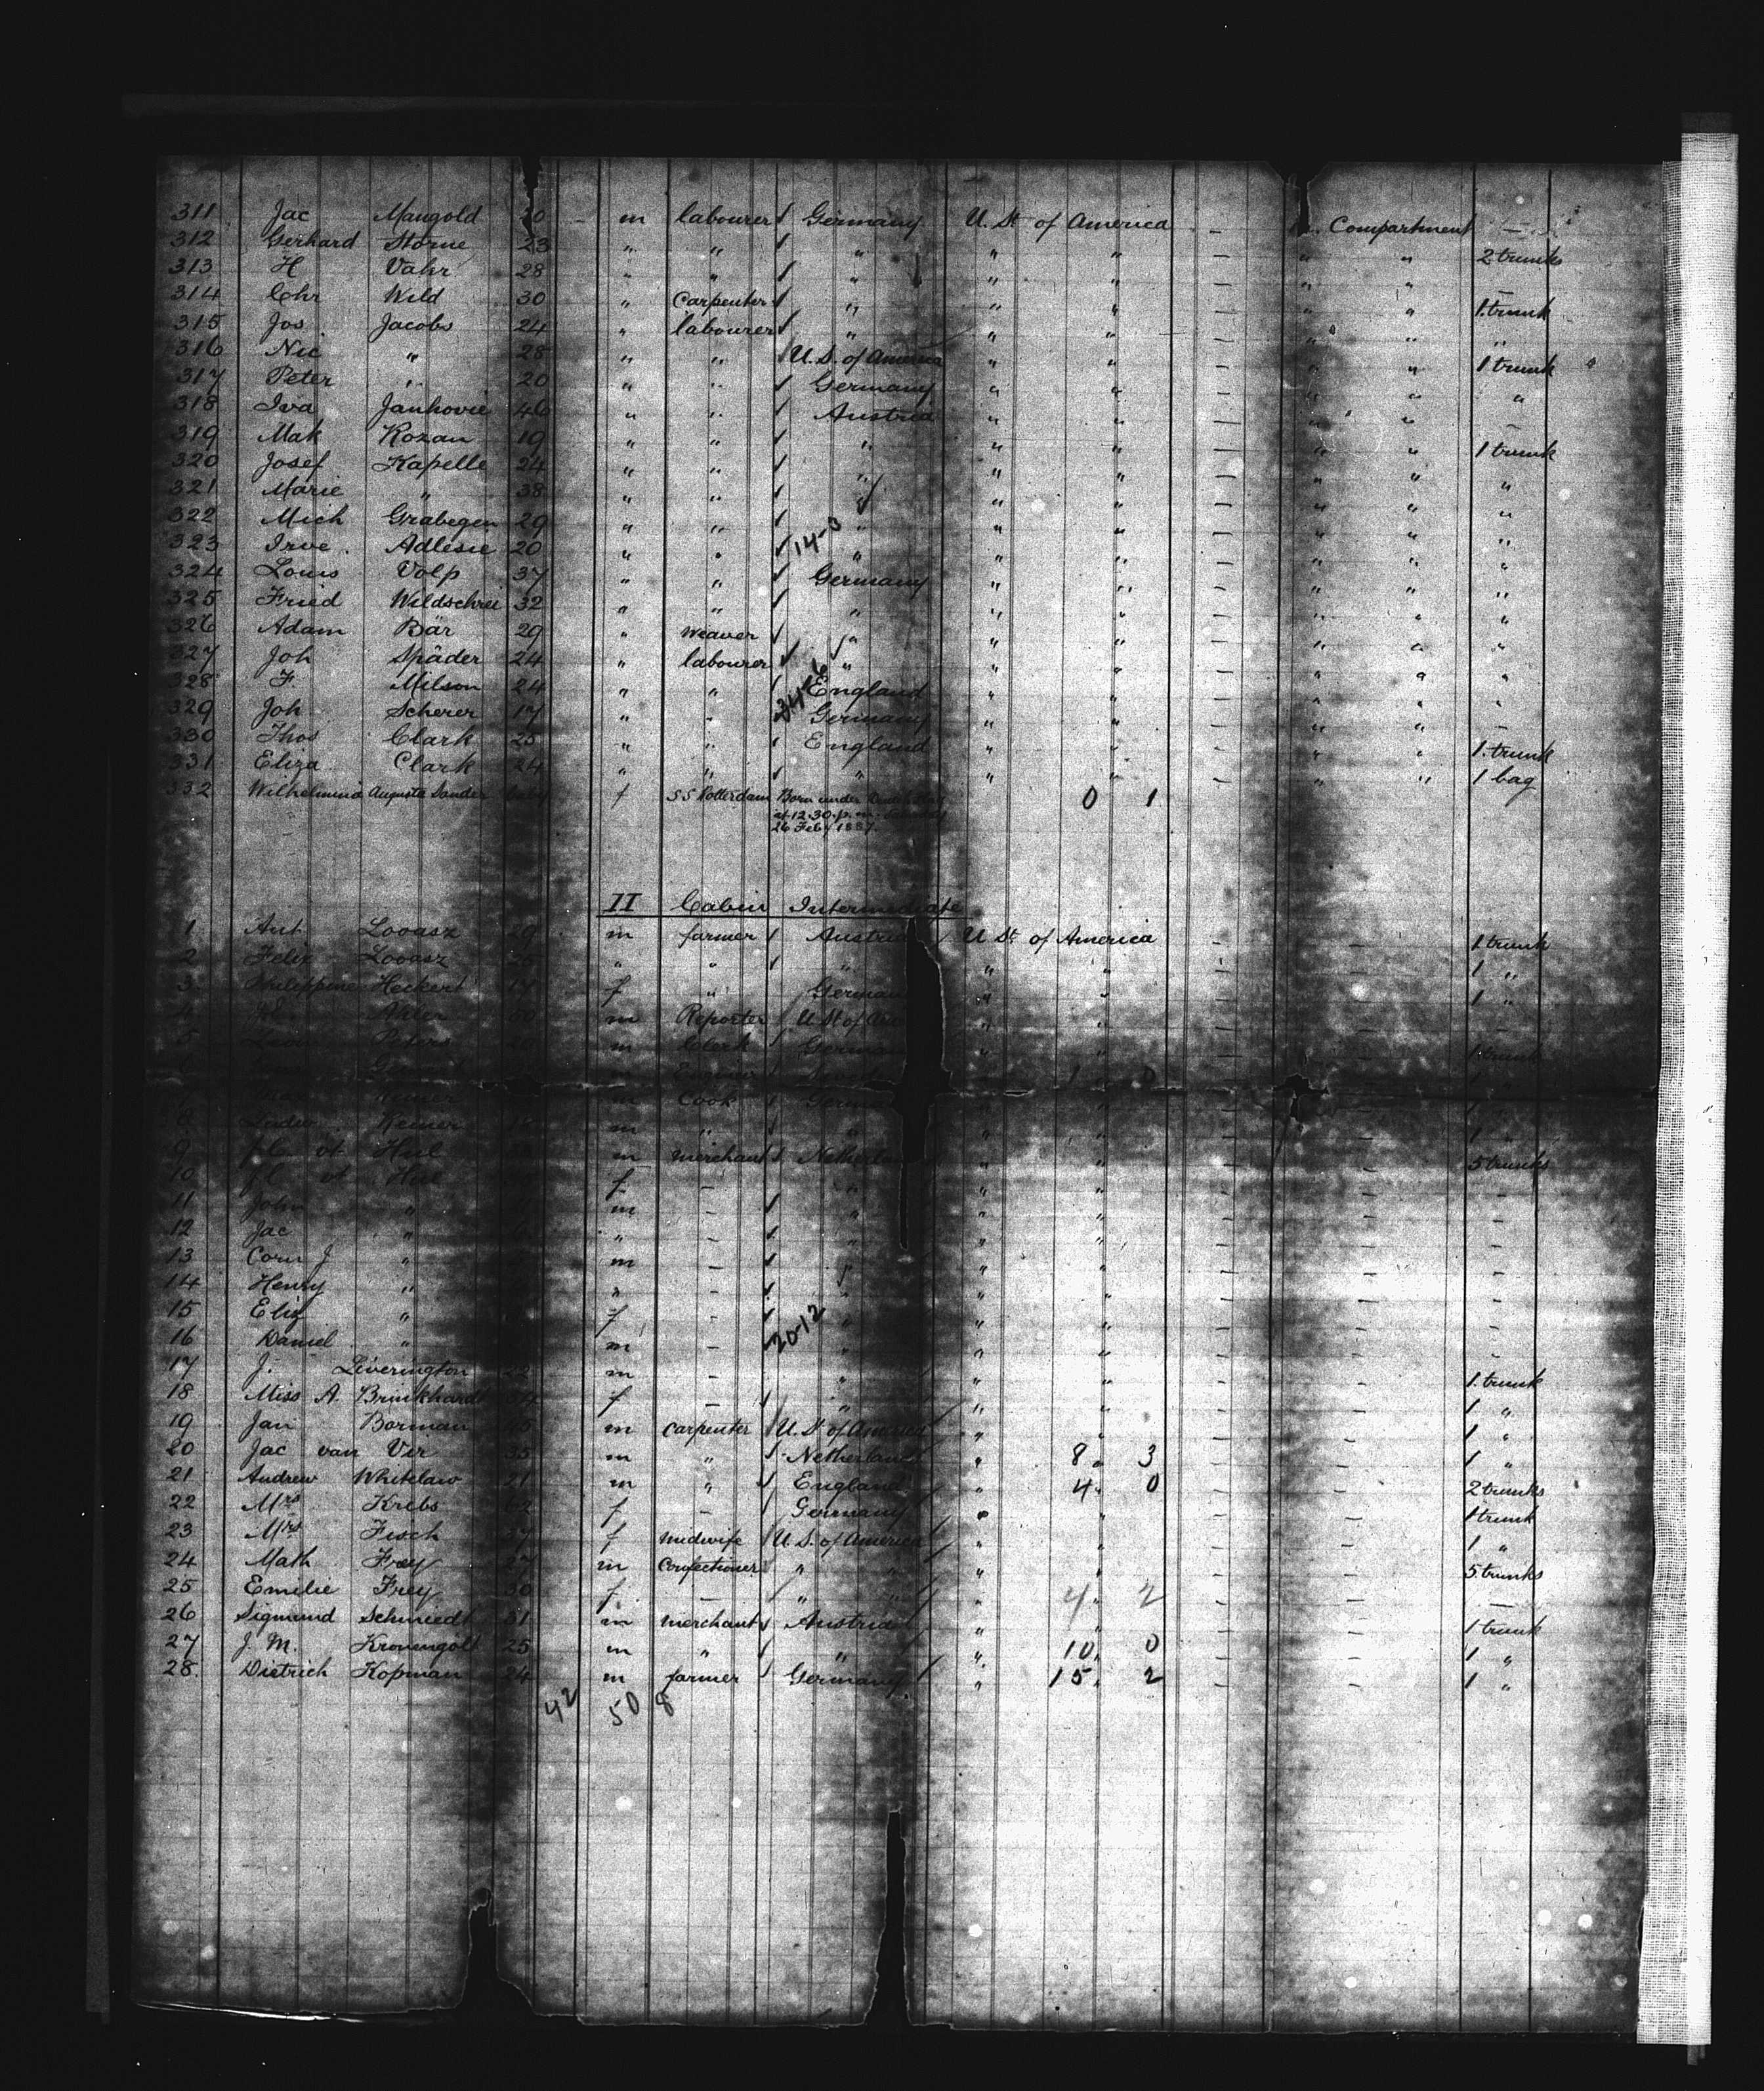 311 Jac Mangold 20 - m labourer Germany U. St of America - " Compartment -
312 Gerhard Storne 23 " " " " " - " " 2 trunks
313 H Vahr 28 " " " " " - " " -
314 Chr Wild 30 " Carpenter " " " - " " 1 trunk
315 Jos Jacobs 24 " labourer " " " - " " "
316 Nic " 28 " " U.S. of America " " - " " 1 trunk
317 Peter " 20 " " Germany " " - " " "
318 Iva Jankovic 46 " " Austria " " - " " -
319 Mak Kozan 19 " " " " " - " " 1 trunk
320 Josef Kapelle 24 " " " " " - " " "
321 Marie " 38 " " " " " - " " "
322 Mich Grabegen 29 " " " " " - " " "
323 Irve Adlesie 20 " " 14-0 " " " - " " "
324 Louis Volp 37 " " Germany " " - " " "
325 Fried Wildschrei 32 " " " " " - " " "
326 Adam Bär 29 " Weaver " " " - " " "
327 Joh Späder 24 " labourer " " " - " " "
328 F. Milson 24 " " England " " - " " "
329 Joh Scherer 17 " " Germany " " - " " -
330 Thos Clark 25 " " England " " - " " 1 trunk
331 Eliza Clark 24 " " " " " - " " 1 bag
332 Wilhelmina Augusta Sander baby f SS Rotterdam Born under Dutch flag 0 1
at 12.30 p.m. Saturday
26 Feby 1887.
II Cabin Intermediate
1 Ant Lovasz 29 m farmer Austria U St of America - - 1 trunk
2 Felix Lovasz " " " " " - - 1 "
3 Philippine Heckert 17 f " German " " - - 1 "
m Reporter U St of Am " " - -
5 Peters m Clerk German " " - - 1 trunk
7 m Cook Germ " - 1
8 Ludw Keiner m " " " " - - 1 "
9 vt Hul m merchant Netherla " " - - 5 trunks
10 vt Hul f - " " " - - -
11 John " m - " " " - - -
12 Jac " " - " " " - - -
13 Corn J " m - " " " - - -
14 Henry " " - " " " - - -
15 Eliz " f - " " " - - -
16 Daniel " m - 20-12 " " " - - -
17 J. Liverington 22 m - " " " - - 1 trunk
18 Miss A. Brinkhard f - " " " - - 1 "
19 Jan Borman m carpenter U. St of America " " - - 1 "
20 Jac van Ver 35 m " Netherland " 8 " 3 - - 1 "
21 Andrew Whitelaw 21 m " England " 4 " 0 - - 2 trunks
22 Mrs Krebs 62 f - Germany " " - - 1 trunk
23 Mrs Fisch 37 f midwife U.S. of America " " - - 1 "
24 Math Frey 27 m Confectioner " " " " - - 5 trunks
25 Emilie Frey 30 f - " " " 4 " 2 - - -
26 Sigmund Schmiedt 31 m merchant Austria " " - - 1 trunk
27 J. M. Kronengolt 25 m " " " 10 " 0 - - 1 "
28. Dietrich Kopman 24 m farmer Germany " 15 " 2 - - 1 "
42 50 8